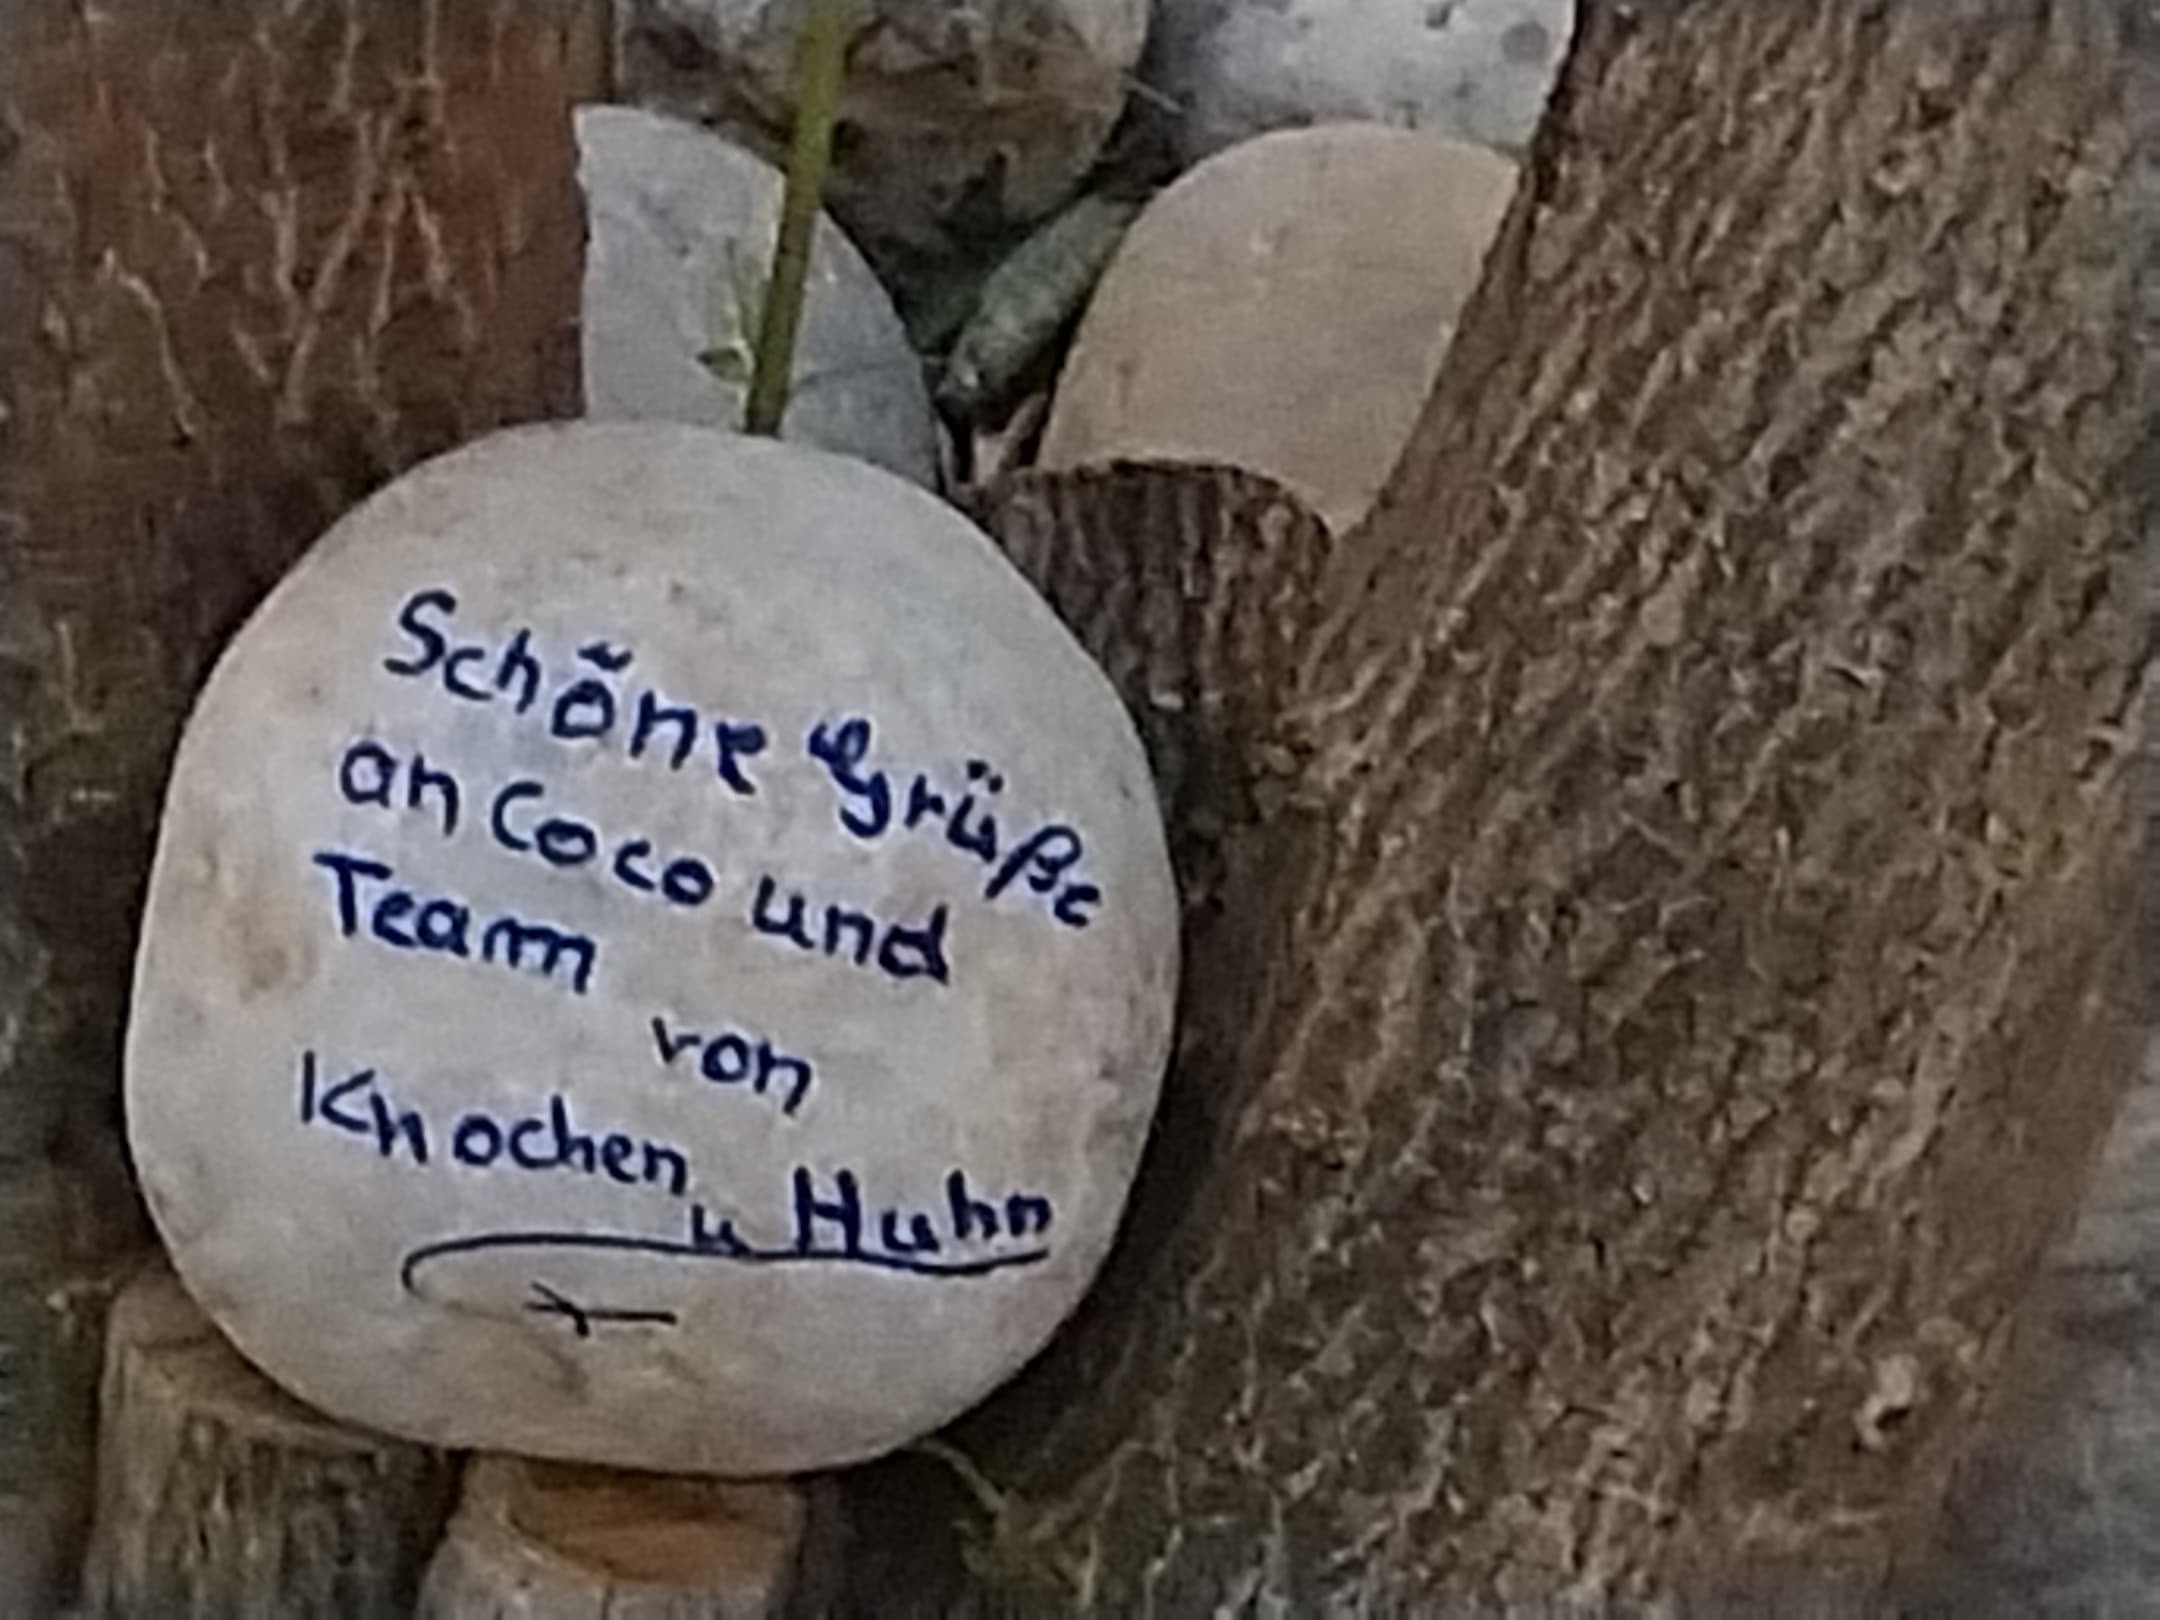 Schöne Grüße
an Coco und
Team
von
Knochen
u Huhn